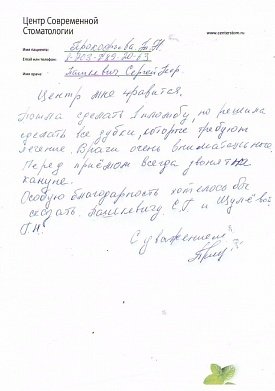 Центр Современной
Стоматологии
www.centerstom.ru
Имя пациента: Прокофьева Т. Н.
Email или телефон:
Имя врача: Пашкевич Сергей
Центр мне нравится.
Пошла сделать 1 пломбу, но решила
сделать все зубки, которые требуют
лечение. Врачи очень внимательные.
Перед приёмом всегда звонят на
кануне.
Особую благодарность хотелось бы
сказать Пашкевичу С.Г. и Шулёвой
Г.Н.
С уважением